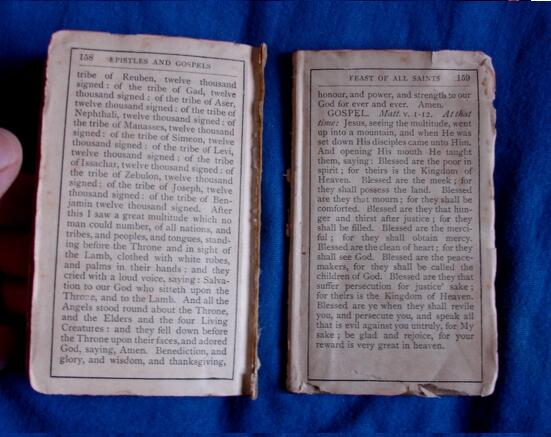 158 EPISTLES AND GOSPELS
tribe of Reuben, twelve thousand
signed: of the tribe of Gad, twelve
thousand signed: of the tribe of Aser,
twelve thousand signed: of the tribe of
Nephthali, twelve thousand signed: of
the tribe of Manasses, twelve thousand
signed: of the tribe of Simeon, twelve
thousand signed: of the tribe of Levi,
twelve thousand signed: of the tribe
of Issachar, twelve thousand signed: of
the tribe of Zebulon, twelve thousand
signed; of the tribe of Joseph, twelve
thousand signed: of the tribe of Ben-
jamin twelve thousand signed. After
this I saw a great multitude which no
man could number, of all nations, and
tribes, and peoples, and tongues, stand-
ing before the Throne and in sight of
the Lamb, clothed with white robes,
and palms in their hands; and they
cried with a loud voice, saying: Salva-
tion to our God who sitteth upon the
Throne, and to the Lamb. And all the
Angels stood round about the Throne,
and the Elders and the four Living
Creatures: and they fell down before
the Throne upon their faces, and adored
God, saying, Amen. Benediction, and
glory, and wisdom, and thanksgiving,
FEAST OF ALL SAINTS 159
honour, and power, and strength to our
God for ever and ever. Amen.
GOSPEL. Matt v. 1-12. At that
time: Jesus, seeing the multitude, went
up into a mountain, and when He was
set down His disciples came unto Him.
And opening His mouth He taught
them, saying: Blessed are the poor in
spirit; for theirs is the Kingdom of
Heaven. Blessed are the meek; for
they shall possess the land. Blessed
are they that mourn; for they shall be
comforted. Blessed are they that hun-
ger and thirst after justice; for they
shall be filled. Blessed are the merci-
ful; for they shall obtain mercy.
Blessed are the clean of heart; for they
shall see God. Blessed are the peace-
makers, for they shall be called the
children of God. Blessed are they that
suffer persecution for justice' sake;
for theirs is the Kingdom of Heaven.
Blessed are ye when they shall revile
you, and persecute you, and speak all
that is evil against you untruly, for My
sake; be glad and rejoice, for your
reward is very great in heaven.